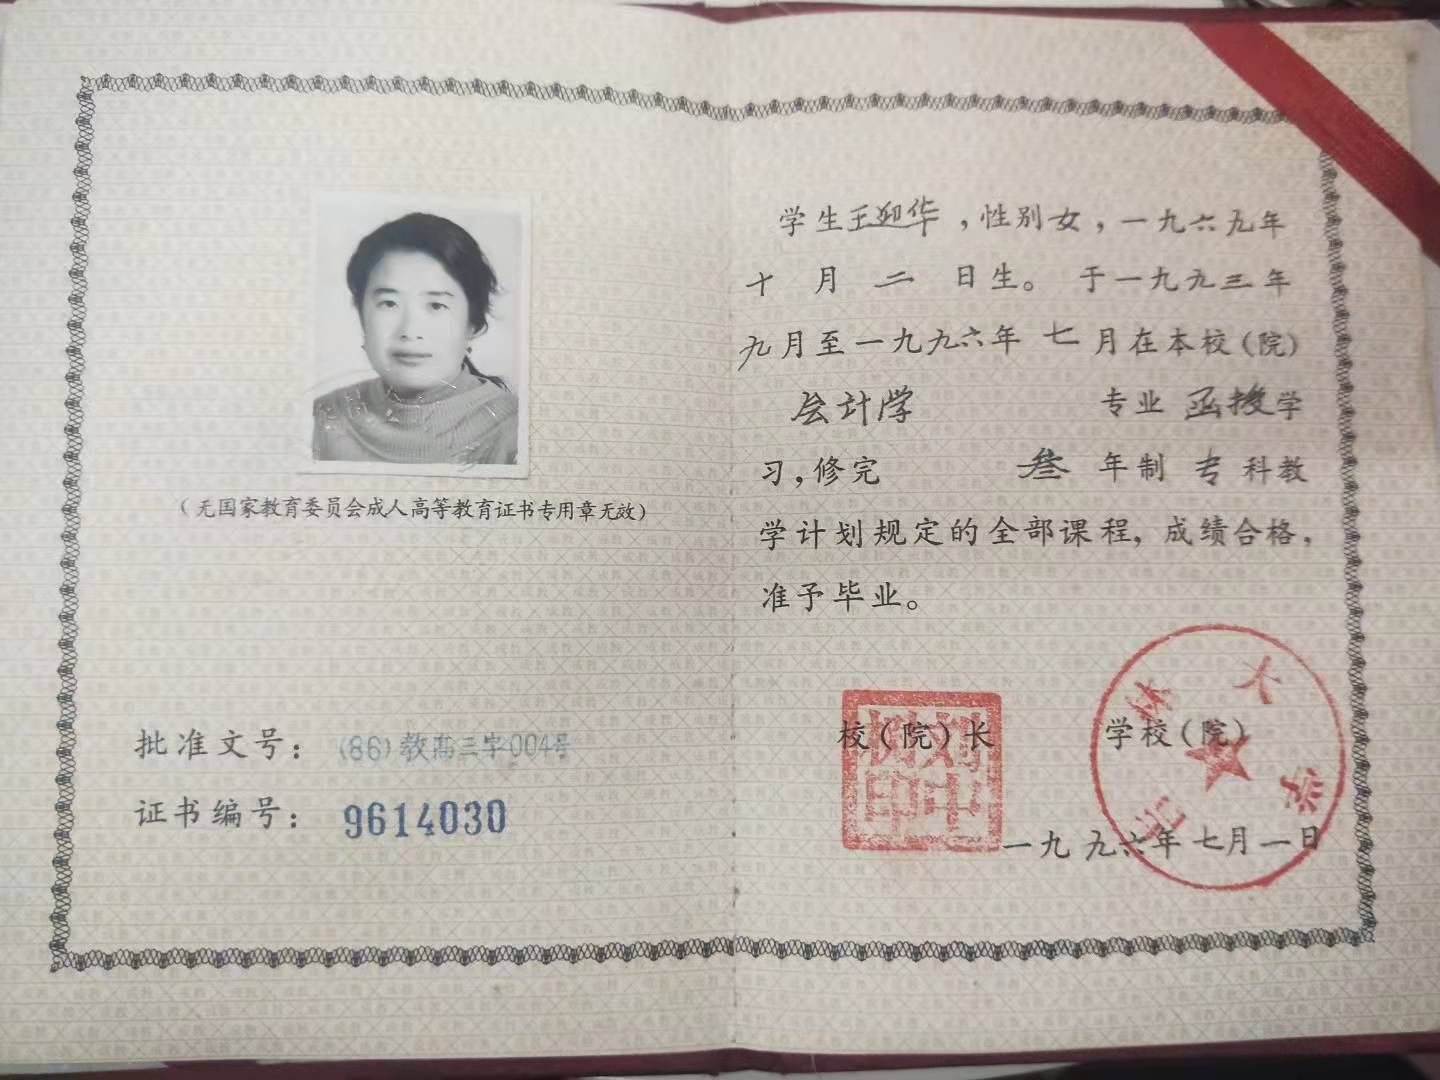 （无国家教育委员会成人高等教育证书专用章无效）
批准文号：(86)教高三字004号
证书编号：9614030
学生王迎华，性别女，一九六九年
十月二日生。于一九九三年
九月至一九九六年七月在本校（院）
会计学专业函授学
习，修完叁年制专科教
学计划规定的全部课程，成绩合格，
准予毕业。
校（院）长 学校（院）
刘中树印
吉林大学
一九九六年七月一日